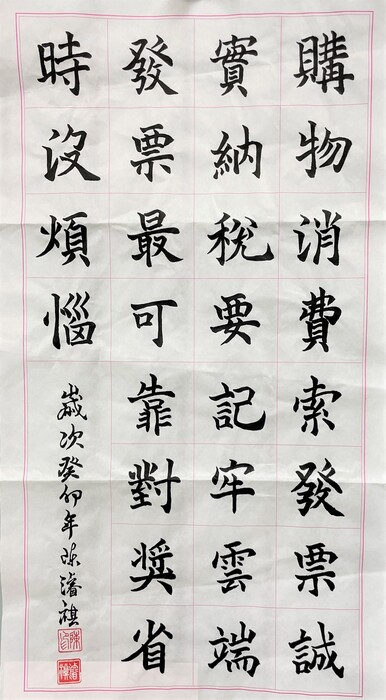 購物消費索發票誠
實納稅要記牢雲端
發票最可靠對獎省
時沒煩惱
歲次癸卯年陳濬祺